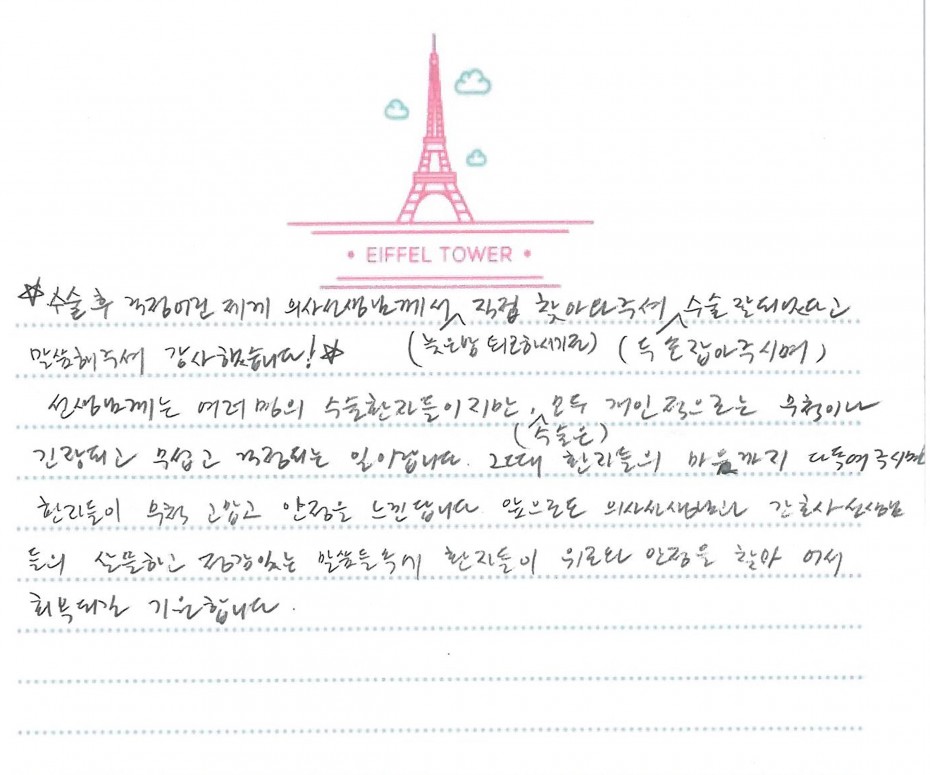 EIFFEL TOWER
☆수술 후 걱정어린 제게 의사선생님께서 직접 찾아와주셔 수술 잘되었다고
말씀해주셔 감사했습니다!☆ (늦은밤 퇴근하시기전) (두 손 잡아주시며)
선생님께는 여러명의 수술환자들이지만, 모두 개인적으로는 무척이나
(수술은)
긴장되고 무섭고 걱정되는 일이랍니다. 그럴때 환자들의 마음까지 다독여주시면
환자들이 무척 고맙고 안정을 느낀답니다. 앞으로도 의사선생님과 간호사선생님
들의 살뜰하고 정감있는 말씀들속에 환자들이 위로와 안정을 찾아 어서
회복되길 기원합니다.